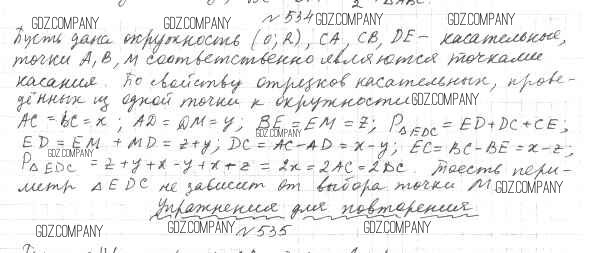 GDZ.COMPANY GDZ.COMPANY № 534 GDZ.COMPANY GDZ.COMPANY
Пусть дана окружность (O; R), CA, CB, DE - касательные,
точки A, B, M соответственно являются точками
касания. По свойству отрезков касательных, прове-
дённых из одной точки к окружности GDZ.COMPANY
AC = BC = x; AD = DM = y; BE = EM = z; P△EDC = ED + DC + CE;
GDZ.COMPANY
ED = EM + MD = z + y; DC = AC - AD = x - y; EC = BC - BE = x - z;
GDZ.COMPANY
P△EDC = z + y + x - y + x + z = 2x = 2AC = 2BC. Тоесть пери-
метр △EDC не зависит от выбора точки M. GDZ.COMPANY
Упражнения для повторения
GDZ.COMPANY GDZ.COMPANY № 535 GDZ.COMPANY